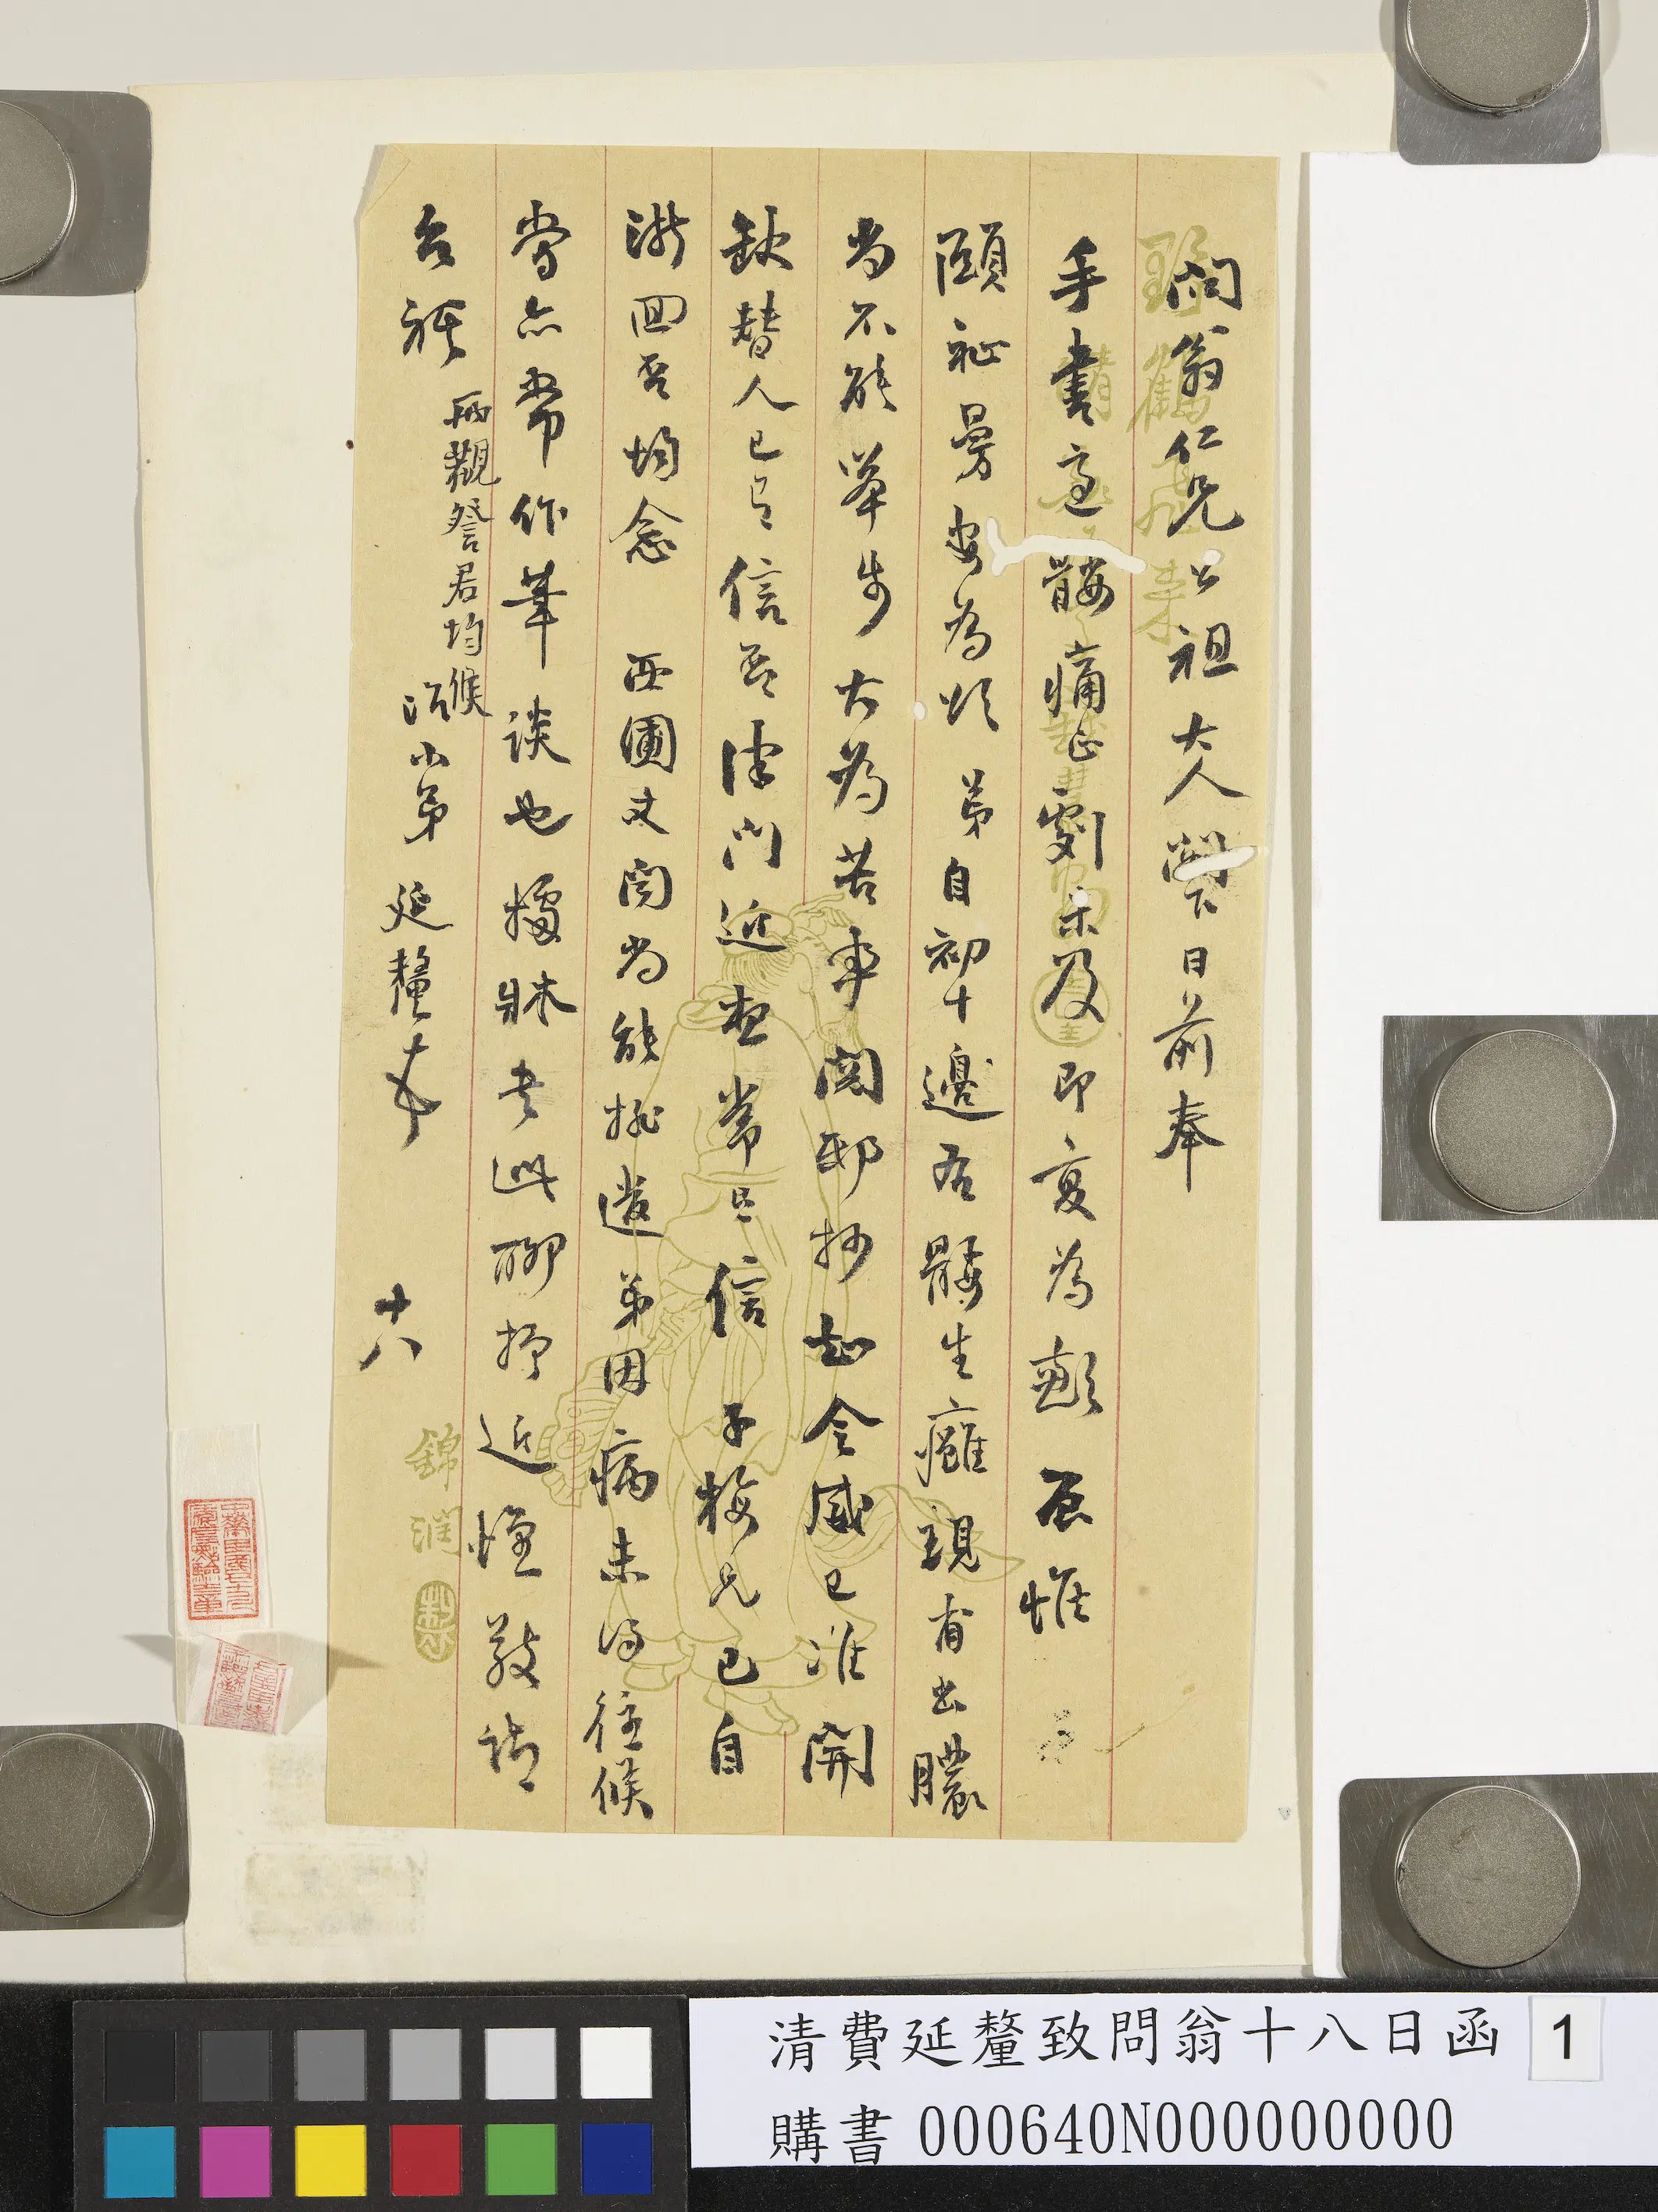 問翁仁兄公祖大人閣下日前奉
手書適髅痛正劇未及即复為歉辰惟
頤祉曼安為頌弟自初十邊右髅生癰現有出膿
尚不能举步大為苦事閱邸抄知令威已准開
缺替人已有信否津門近想常有信子梅兄已自
浙回否均念西圃丈聞尚能排遣弟因病未得往候
常亦常作筆談也擾牀書此聊抒近懷敬請
台祺
兩觀詧君均候
治小弟延釐頓首
十八
錦潤
製
清費延釐致問翁十八日函
1
購書000640N000000000